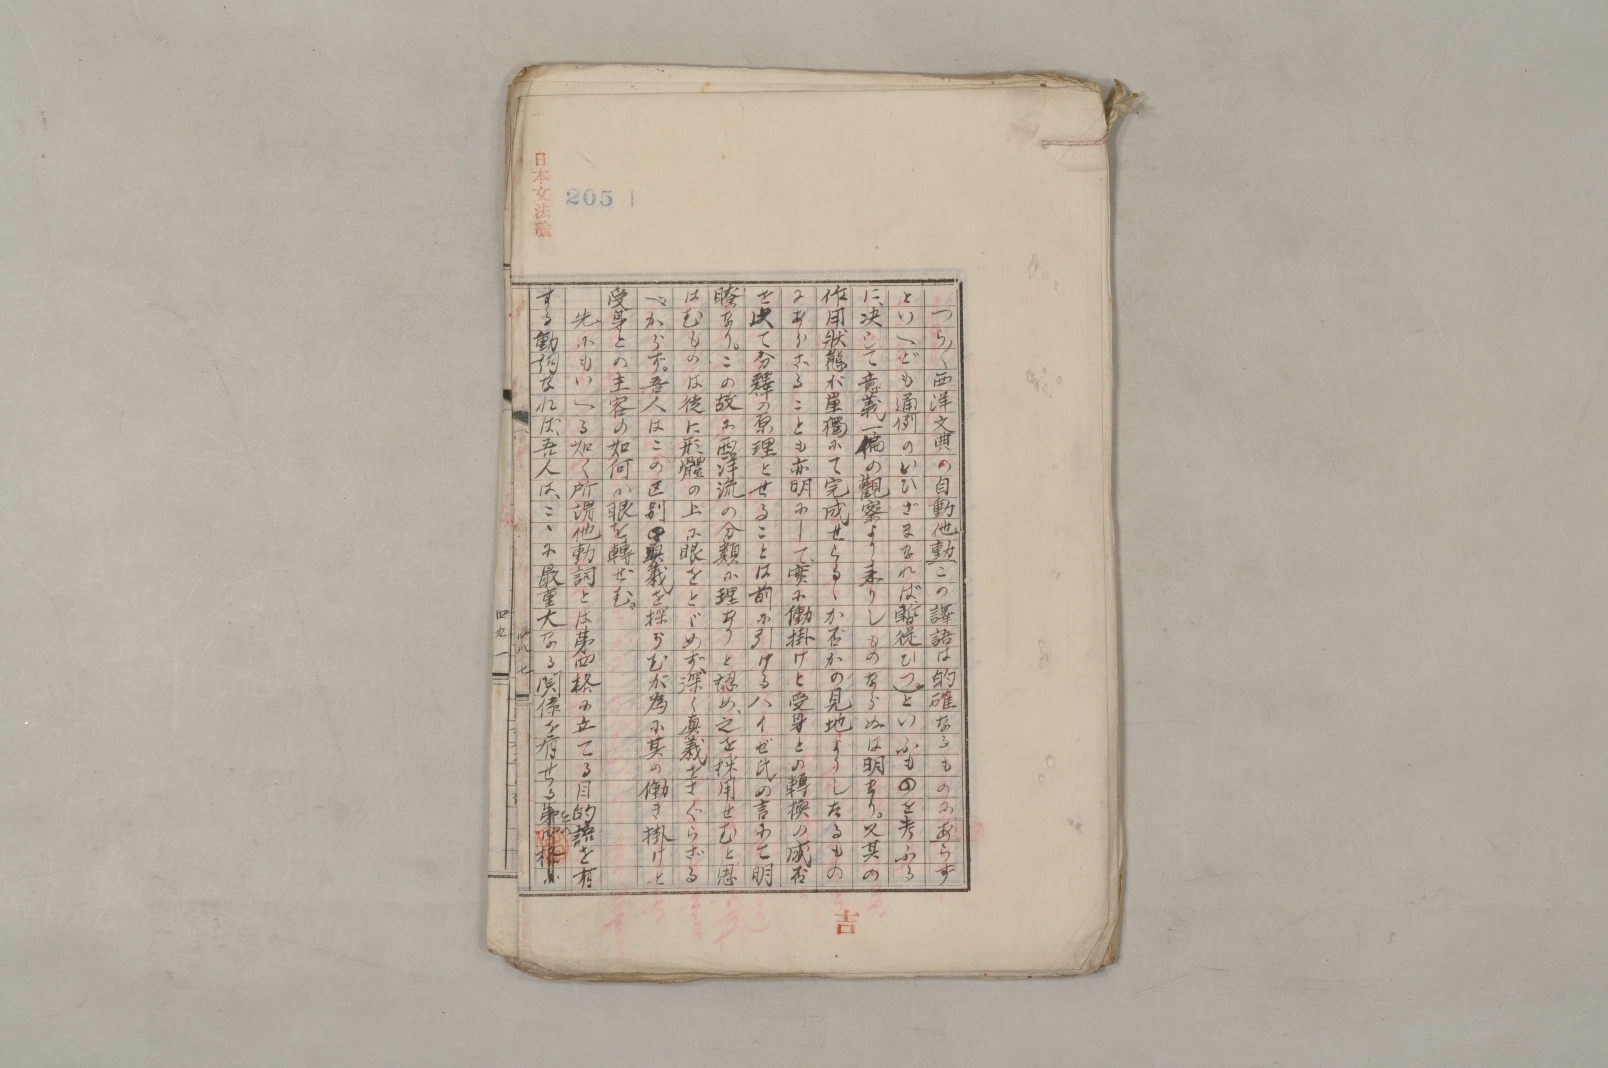 日本文法論
205
つら〱西洋文典の自動他動この譯語は的確なるものにあらず
といへども通例のいひざまなれば暫從ひつといふものを考ふる
に、决して意義一偏の觀察より来りしものならぬは明なり。又其の
作用狀態が單獨にて完成せらるゝか否かの見地よりしたるもの
にあらざることも亦明にして、實に働掛けと受身との轉換の成否
を以て分釋の原理とせることは前に引けるハイゼ氏の言にて明
瞭なり。この故に西洋流の分類に理ありと認め、之を採用せむと思
はむものは徒に形體の上に眼をとゞめず、深く眞義をさぐらざる
べからず。吾人はこの区別の眞義を探らむが為に其の働き掛けと
受身との主客の如何に眼を轉ぜむ。
先にもいへる如く所謂他動詞とは第四格に立てる目的語を有
する動詞なれば、吾人は、こゝに最重大なる関係を有せる第四格
との
四八七
四九一
吉